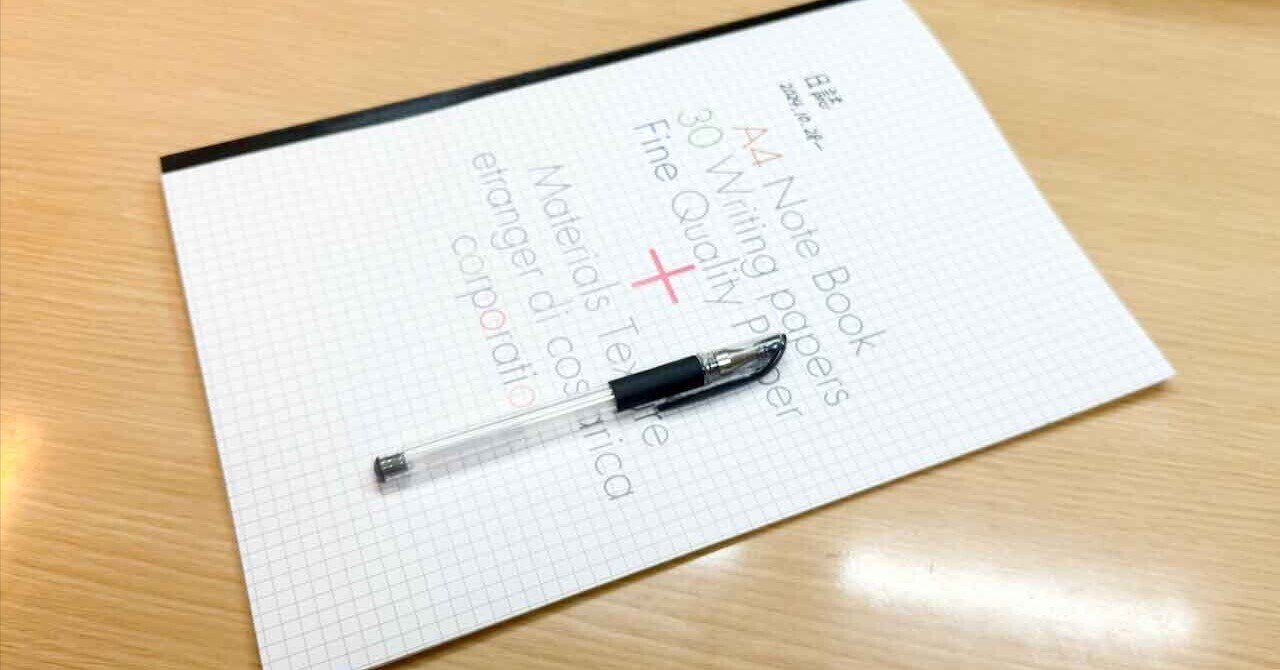 日誌
2024.10.28~
A4 Note Book
30 Writing papers
Fine Quality Paper
+
Materials Texture
etranger di costarica
corporatio